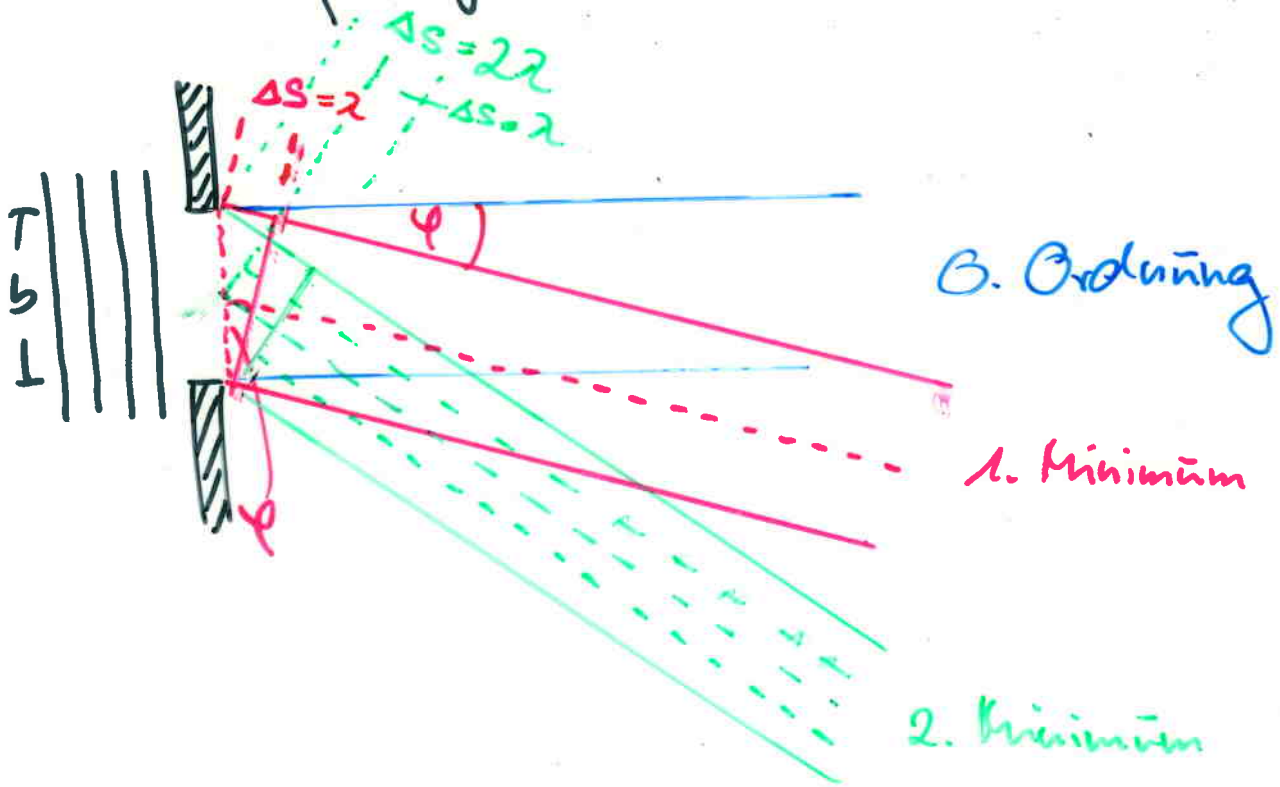 ΔS = 2λ
ΔS = λ
ΔS = λ
φ
b
0. Ordnung
1. Minimum
φ
2. Minimum